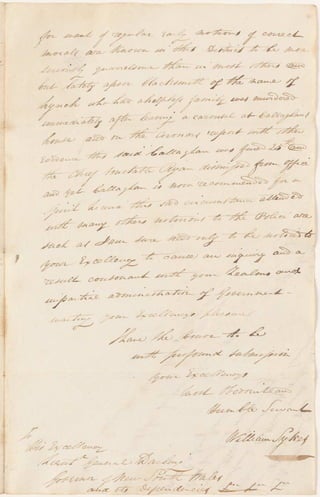 for want of regular early notions of correct
morals are known in this District to be more
quarrelsome than in most others and
but lately upon blacksmith of the name of
Lynch who has a helpless family was murdered
immediately after leaving a carousal at Callaghans
house and on the Coroners report with other
evidence this said Callaghan was fined 20 and
the Chief Constable Ryan dismissed from office
and yet Callaghan is now recommended for a
this sad circumstance attended
with many others notorious to the Police are
such as I am sure need only to be noticed to
your Excellency to cause an inquiry and a
result consonant with your Zealous and
impartial administration of Government
waiting your Excellencys pleasure
I have the honor to be
with profound submission
your Excellencys
most
humble Servant
William Sykes
To
His Excellency
Lieut. General Darling
Governor of New South Wales
and its Dependencies